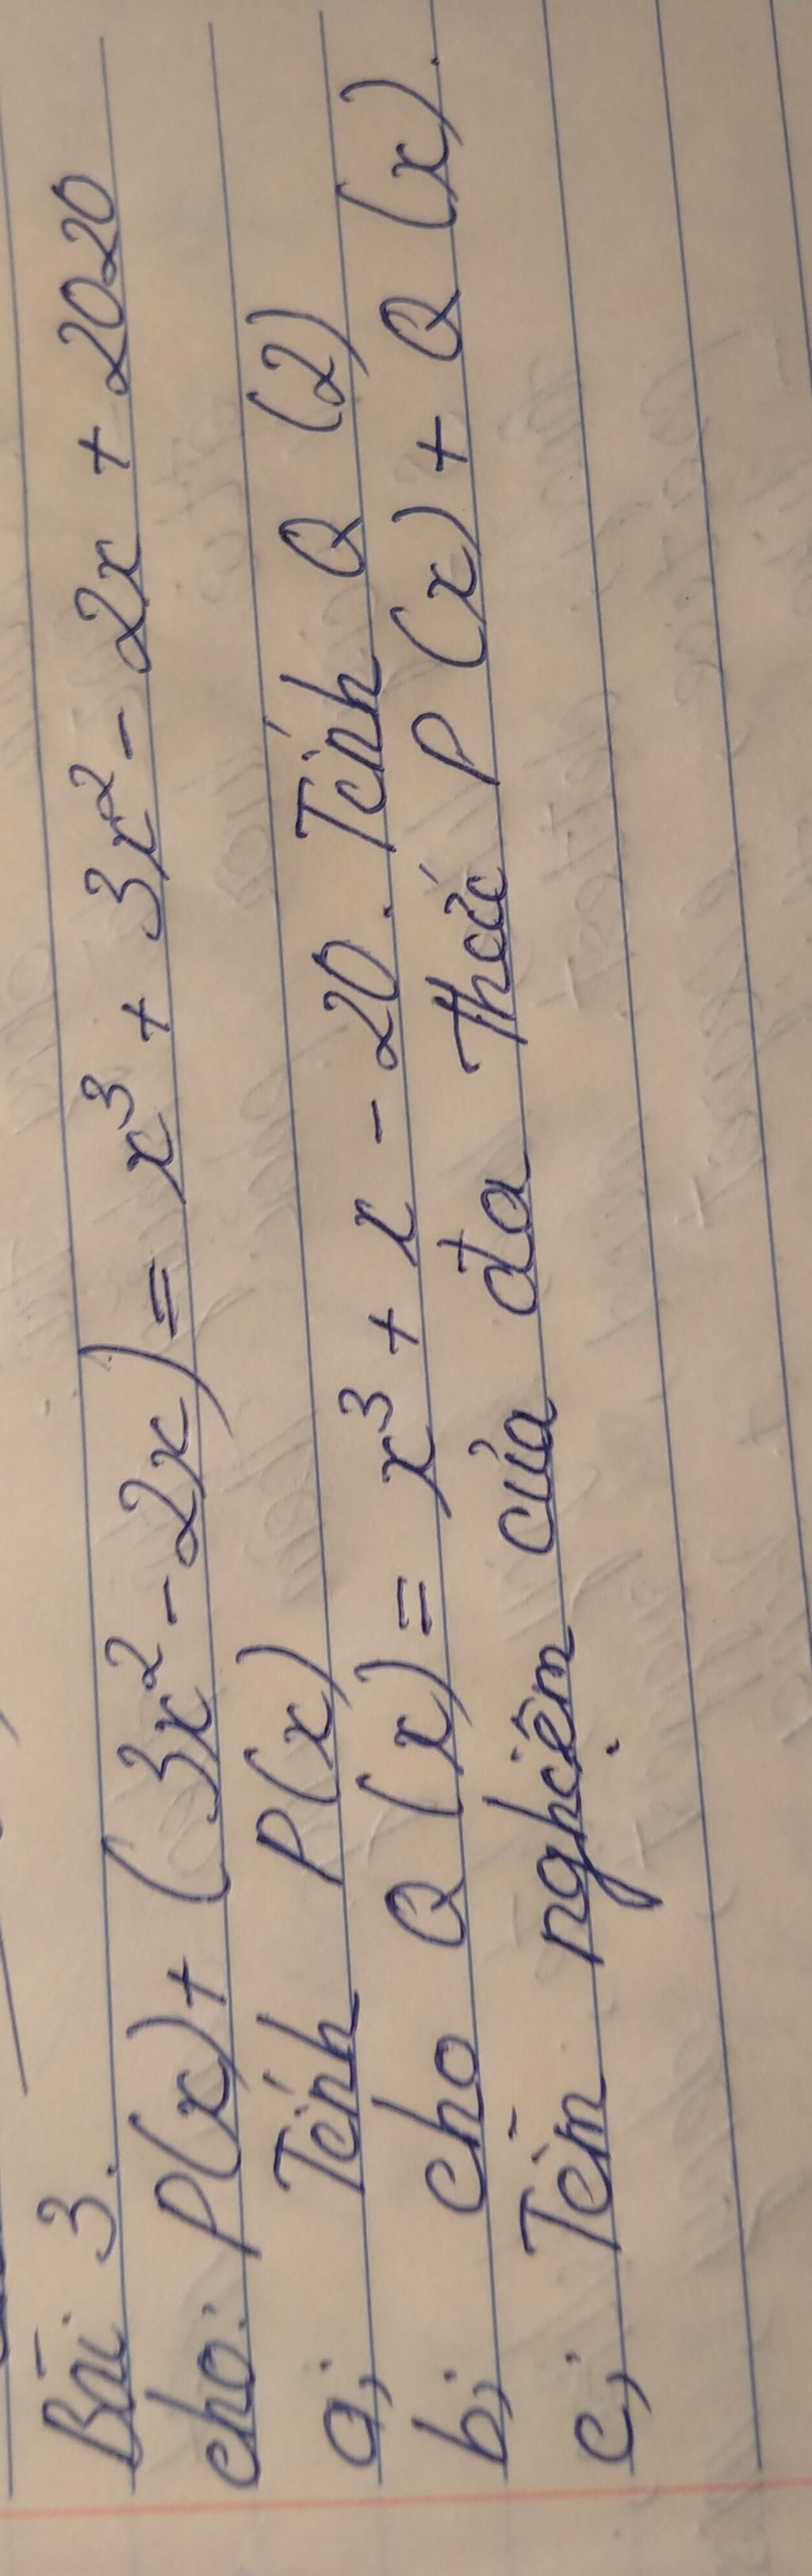 Bài 3.
cho: P(x) + (3x² - 2x) = x³ + 3x² - 2x + 2020
a; Tính P(x)
b; cho Q(x) = x³ + x - 20. Tính Q(2)
c; Tìm nghiệm của đa thức P(x) + Q(x).